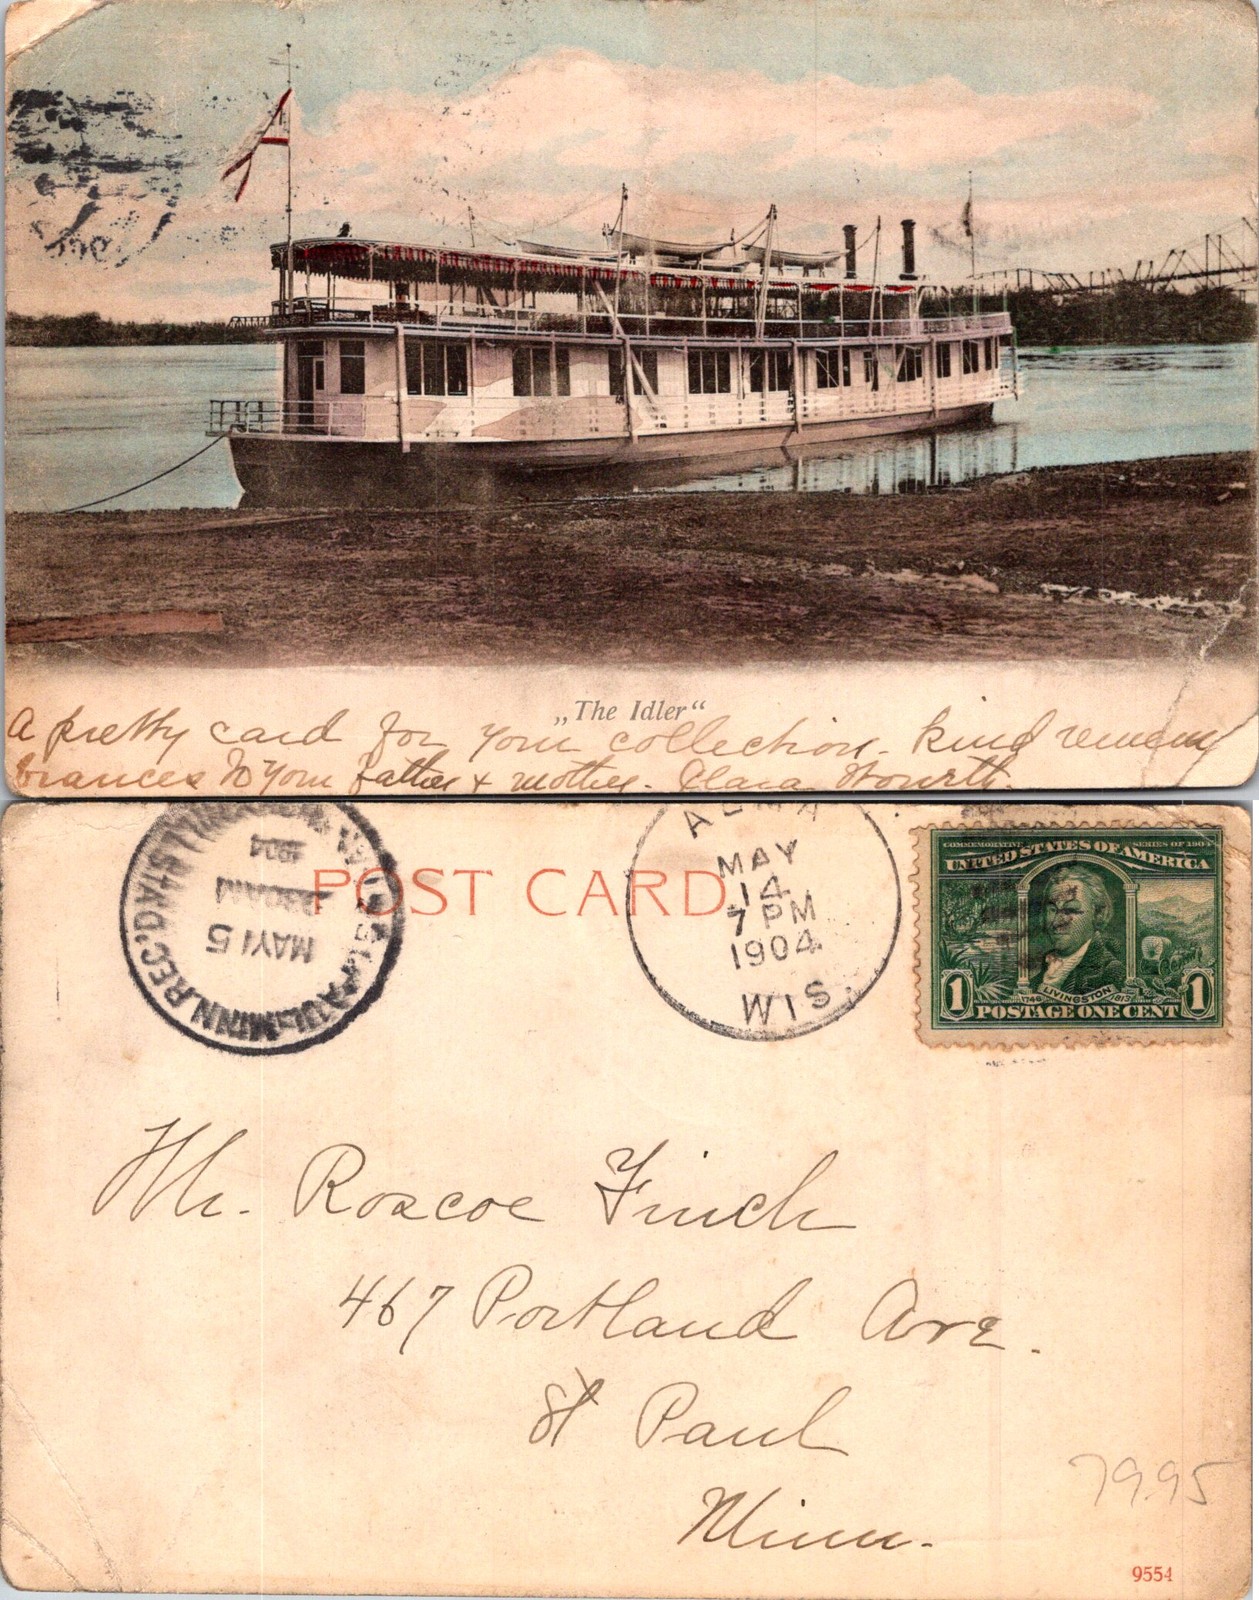 „The Idler“
A pretty card for your collection. kind remem
brances to your father & mother. Clara
POST CARD
MAY 15
1904
ST. PAUL, MINN. REC'D.
ALMA
MAY
14
7 PM
1904
WIS.
COMMEMORATIVE SERIES OF 1904
UNITED STATES OF AMERICA
1 LIVINGSTON 1
POSTAGE ONE CENT
Mr. Roscoe Finch
467 Portland Ave.
St Paul
Minn.
79.95
9554